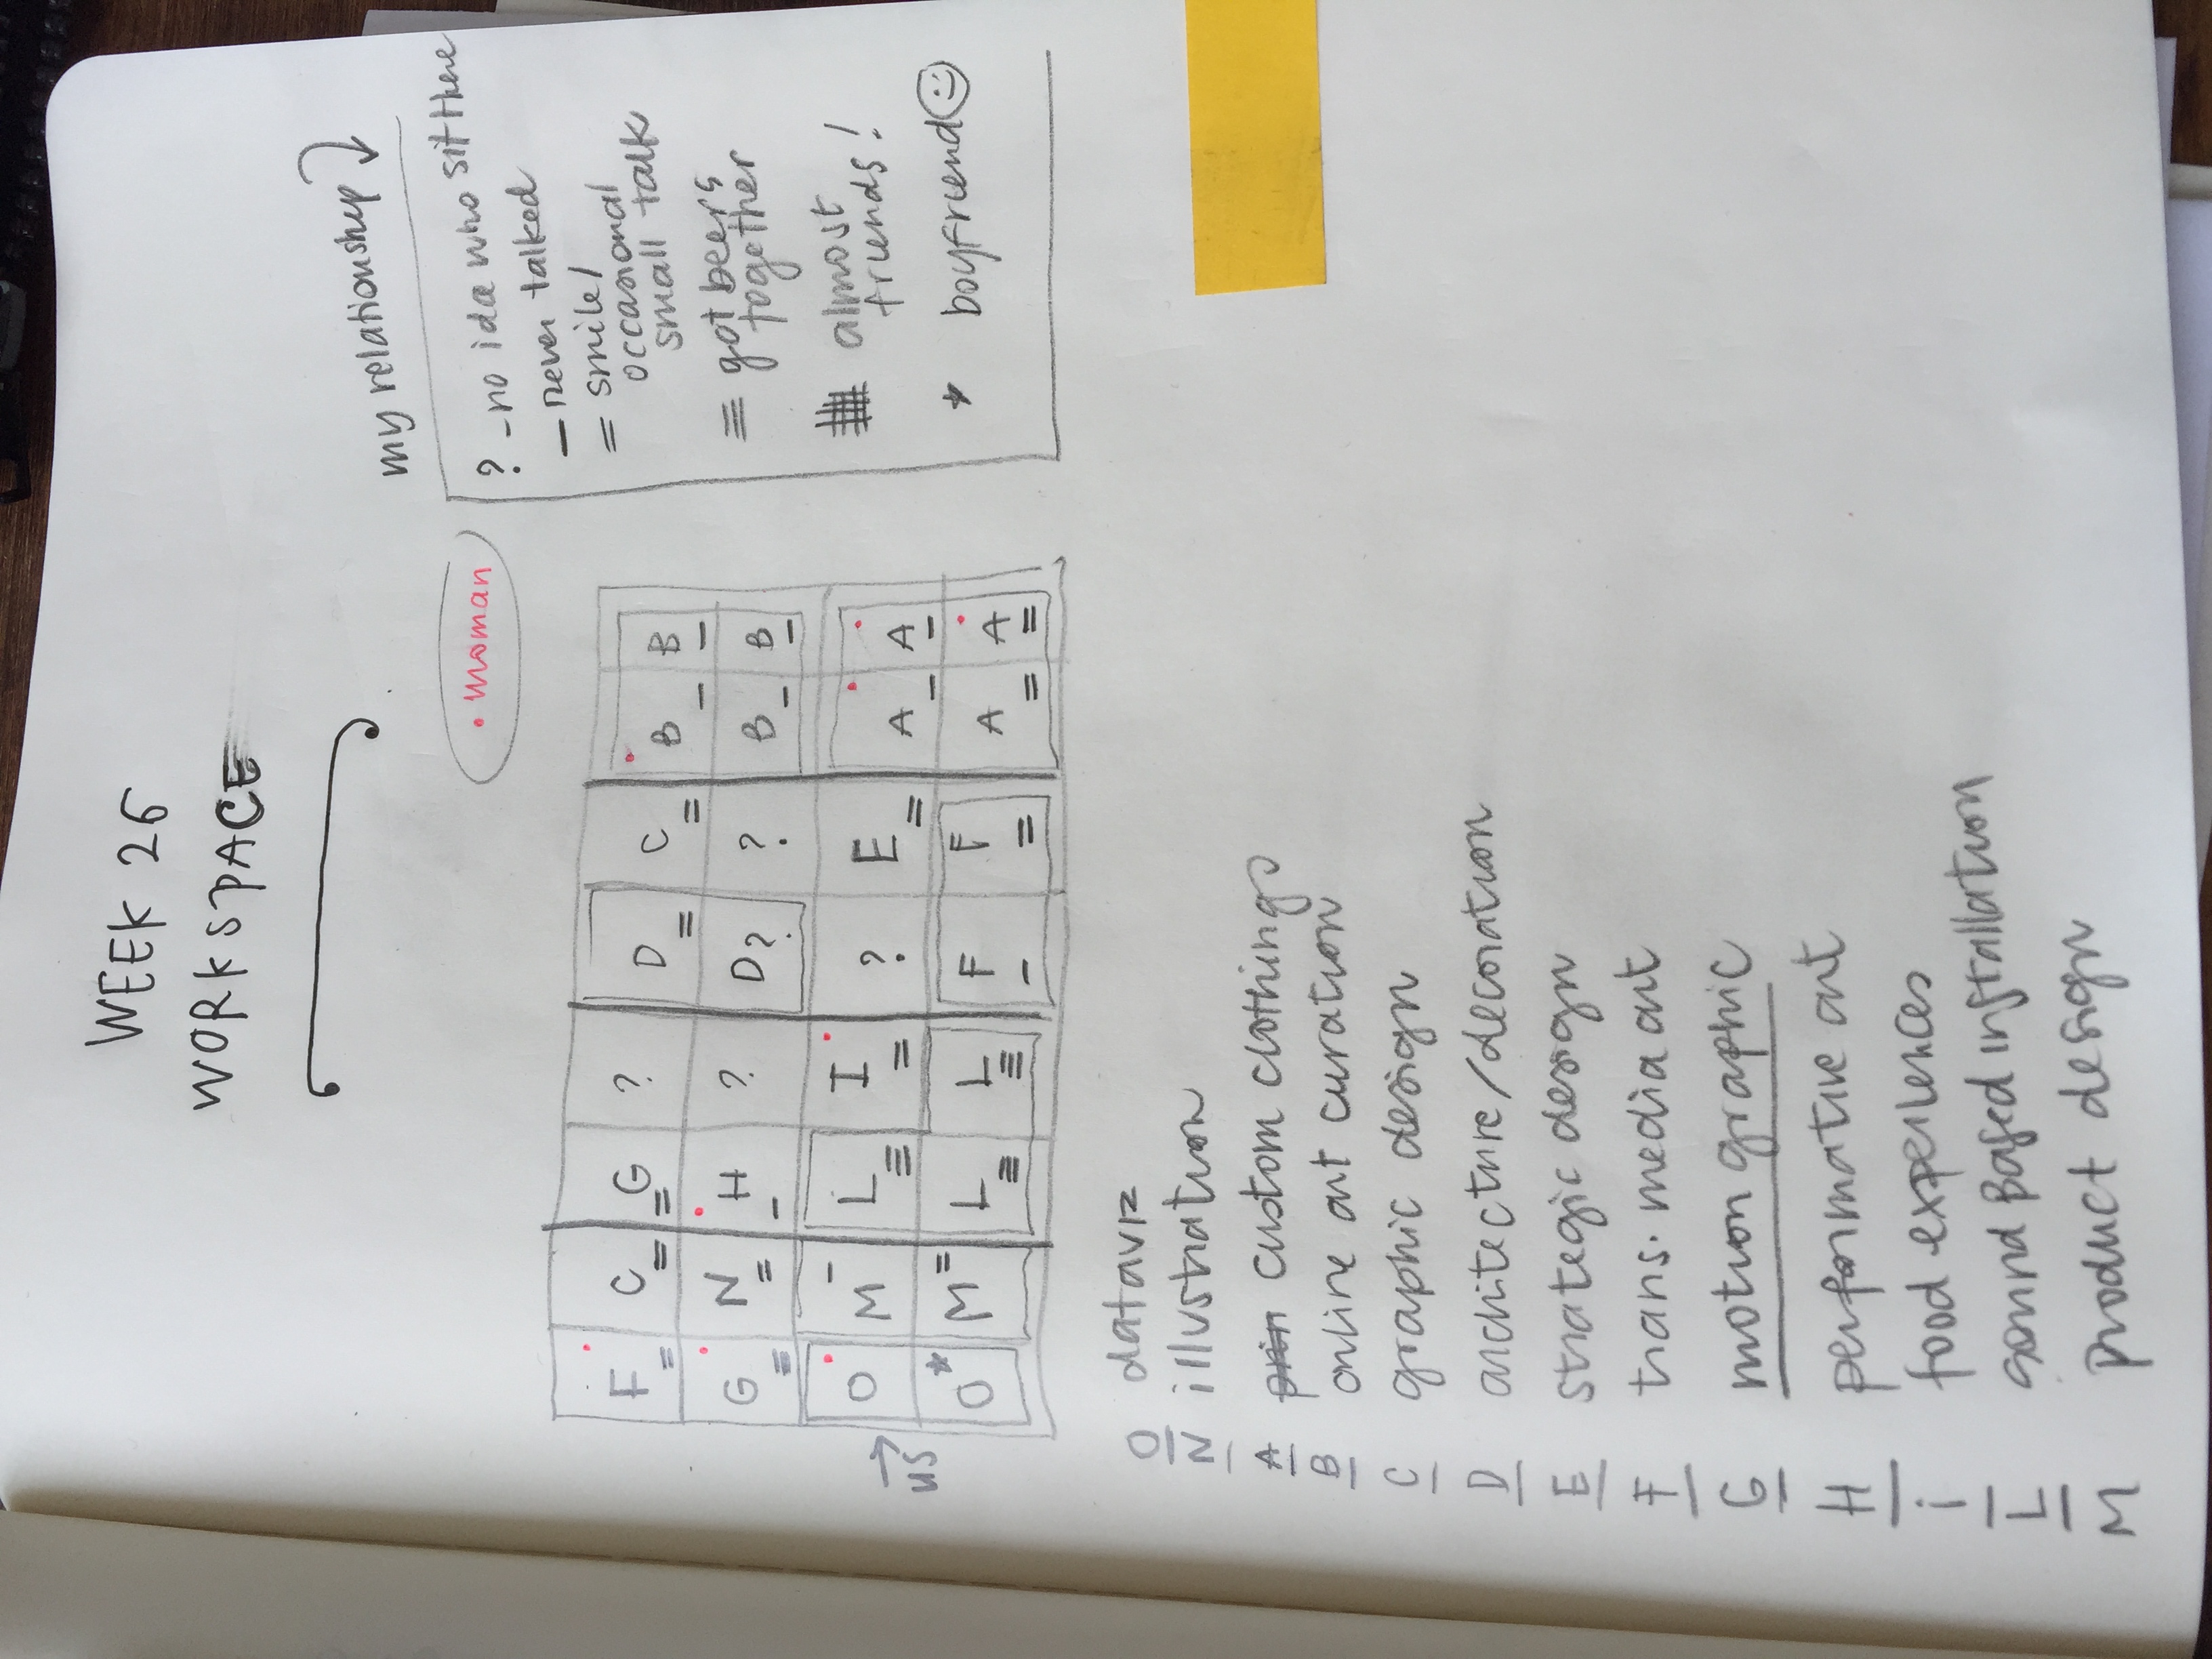 WEEK 26
WORKSPACE
my relationship
• woman
? - no idea who sit there
— never talked
= smile/
occasional
small talk
≡ got beers
together
almost
friends!
* boyfriend
F = C = G = ? D = C = B — B —
G ≡ N = H — ? D? ? B — B —
→ O M — L ≡ I = ? E = A — A —
us O* M = L ≡ L ≡ F — F = A = A =
O dataviz
N illustration
A prin custom clothings
B online art curation
C graphic design
D architecture/decoration
E strategic design
F trans. media art
G motion graphic
H performative art
i food experiences
L sound Based installation
M product design